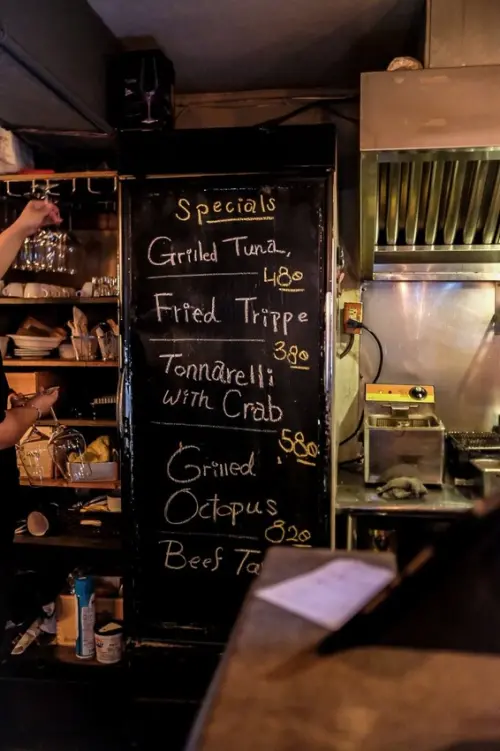 Specials
Grilled Tuna,
480
Fried Trippe
380
Tonnarelli
with Crab
580
Grilled
Octopus
820
Beef